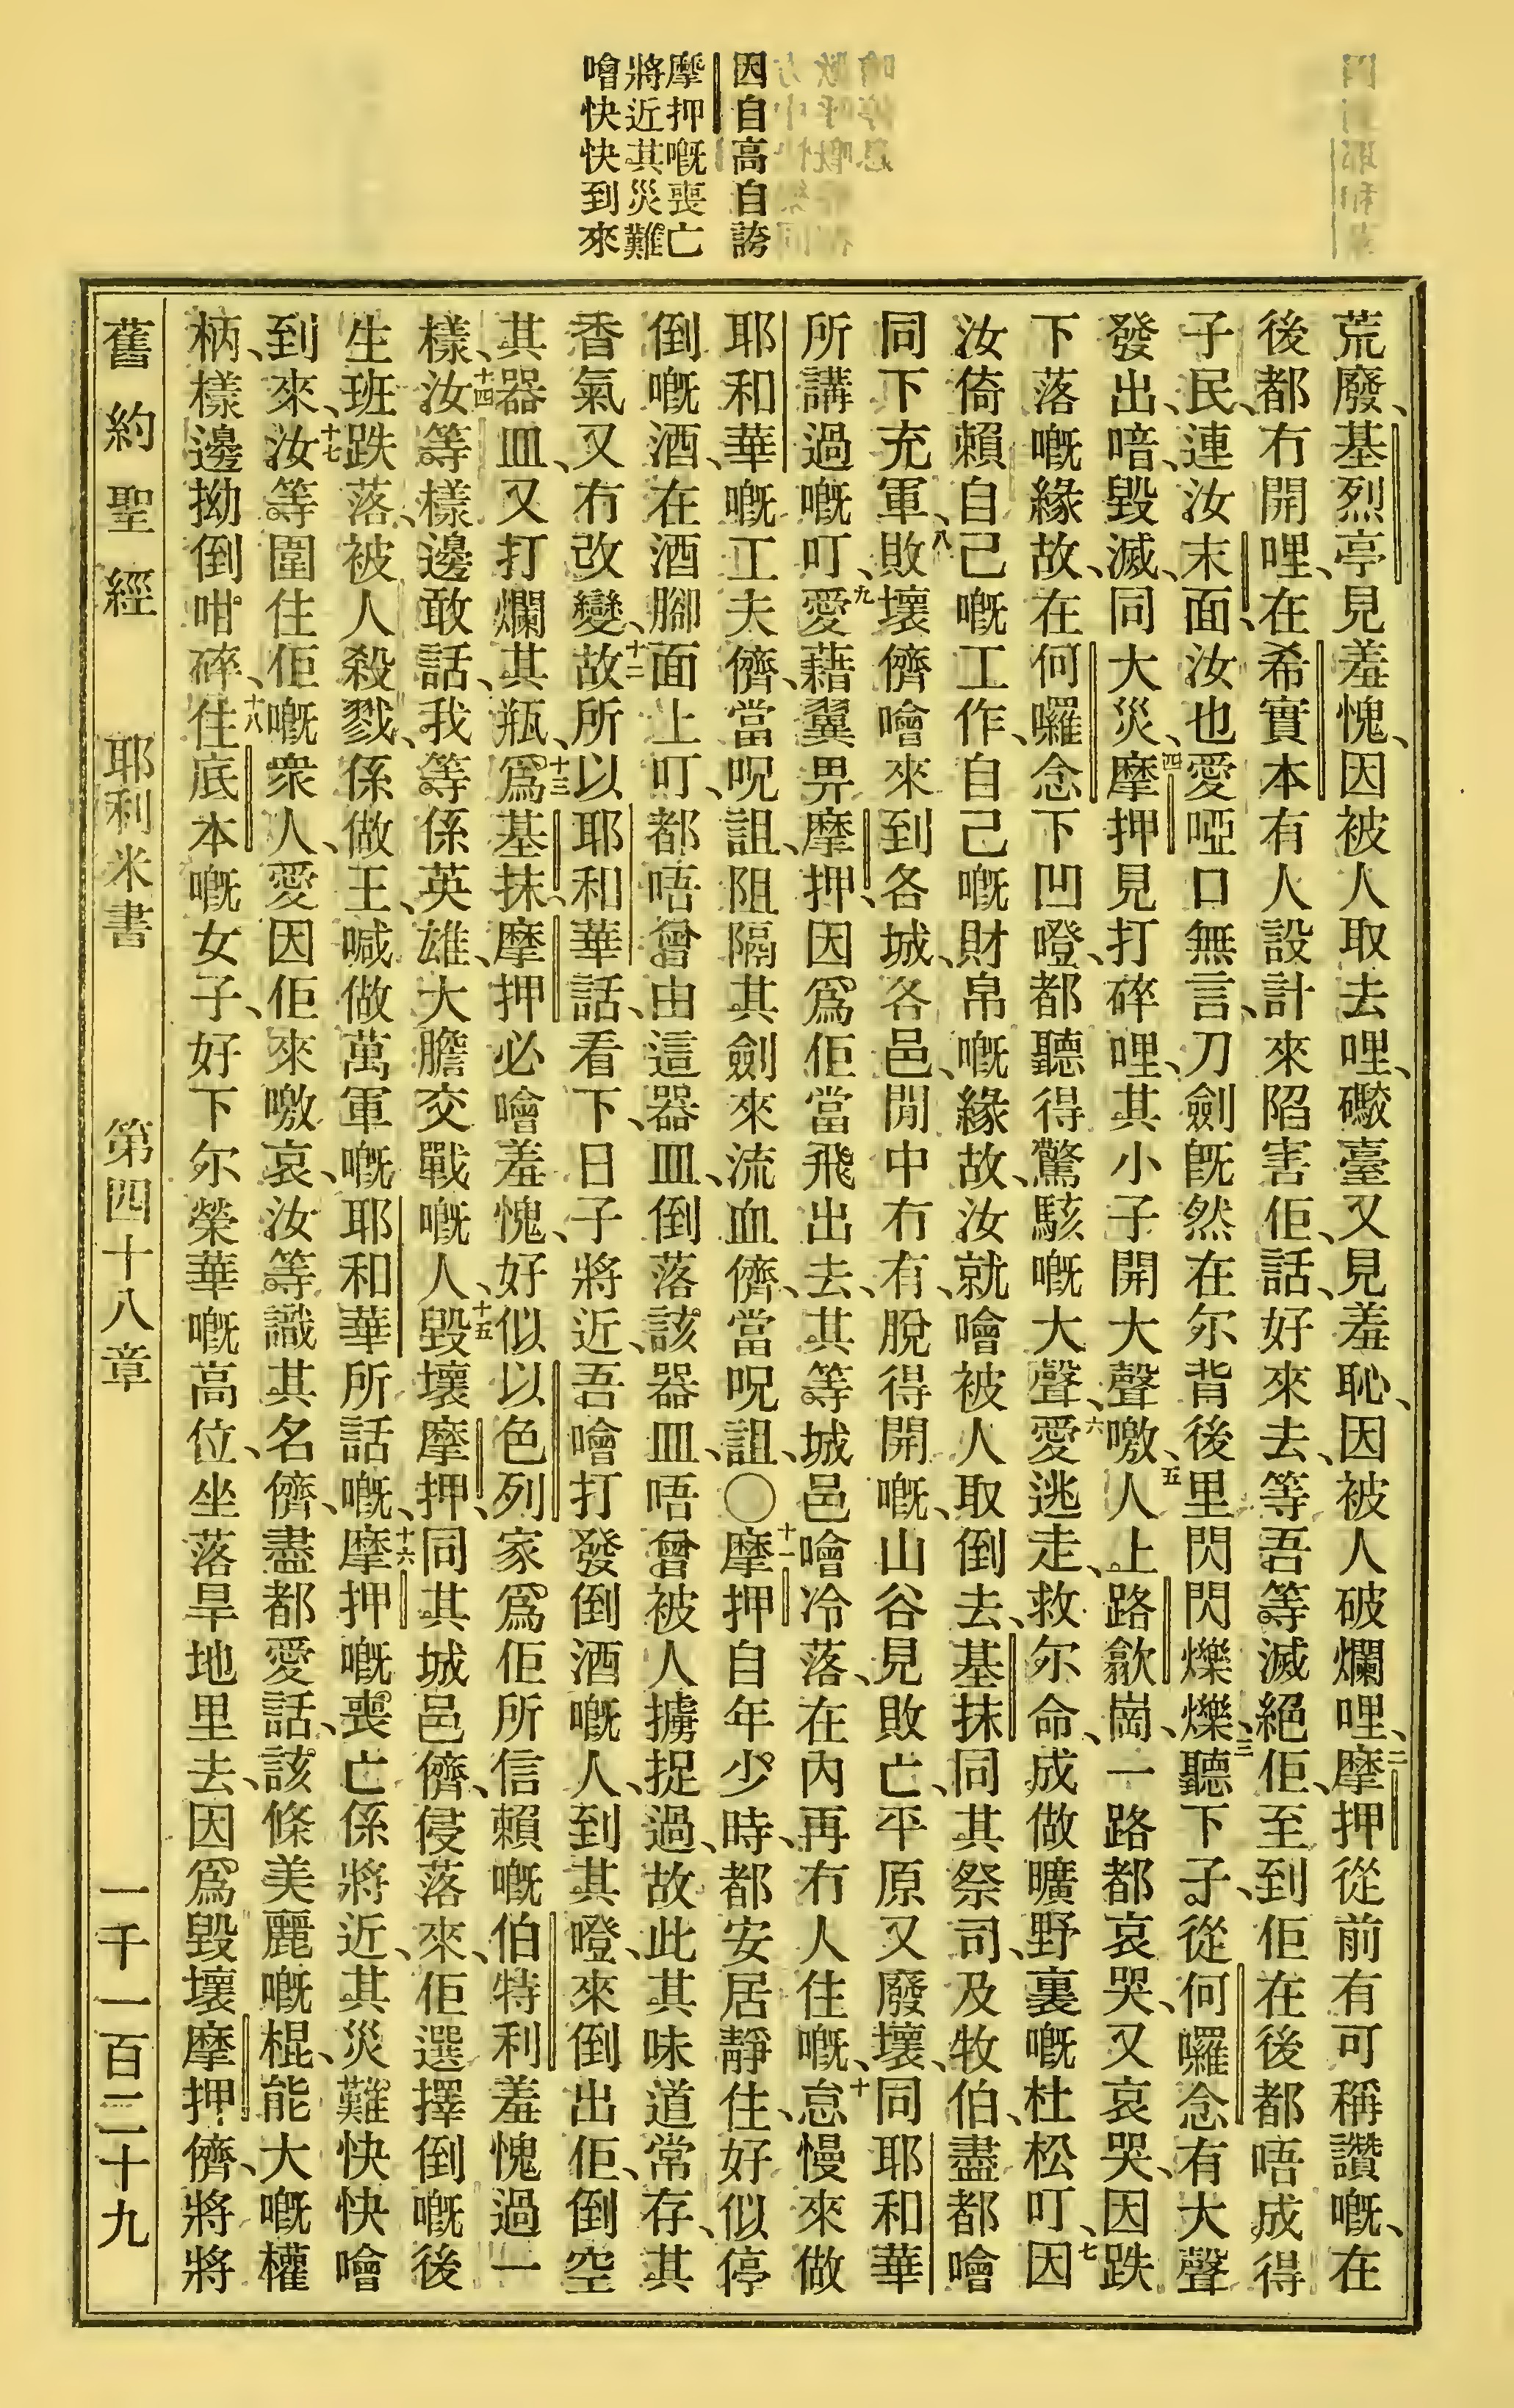 因自高自誇
摩押嘅喪亡
將近其災難
噲快快到來
荒廢、基烈亭見羞愧、因被人取去哩、礮臺又見羞恥、因被人破爛哩、二摩押從前有可稱讚嘅、在
後都冇開哩、在希實本有人設計來陷害佢、話、好來去、等吾等滅絕佢、至到佢在後都唔成得
子民、連汝末面、汝也愛啞口無言、刀劍旣然在尔背後里閃閃爍爍、三聽下子、從何囉念有大聲
發出、喑、毀滅、同大災、四摩押見打碎哩、其小子開大聲噭、五人上路歆崗、一路都哀哭、又哀哭、因跌
下落嘅緣故、在何囉念下凹嶝、都聽得驚駭嘅大聲、六愛逃走、救尔命、成做曠野裏嘅杜松叮、七因
汝倚賴自己嘅工作、自己嘅財帛嘅緣故、汝就噲被人取倒去、基抹同其祭司、及牧伯、盡都噲
同下充軍、八敗壞儕噲來到各城、各邑、閒中冇有脫得開嘅、山谷見敗亡、平原又廢壞、同耶和華
所講過嘅叮、九愛藉翼畀摩押、因爲佢當飛出去、其等城邑噲冷落、在內再冇人住嘅、十怠慢來做
耶和華嘅工夫儕、當呪詛、阻隔其劍來流血儕、當呪詛、〇十一摩押自年少時、都安居靜住、好似停
倒嘅酒、在酒腳面上叮、都唔曾由這器皿、倒落該器皿、唔曾被人擄捉過、故此其味道常存、其
香氣又冇改變、十二故所以耶和華話、看下、日子將近、吾噲打發倒酒嘅人、到其嶝、來倒出佢、倒空
其器皿、又打爛其瓶、十三爲基抹、摩押必噲羞愧、好似以色列家爲佢所信賴嘅伯特利羞愧過一
樣、十四汝等樣邊敢話、我等係英雄、大膽交戰嘅人、十五毀壞摩押、同其城邑儕、侵落來、佢選擇倒嘅後
生班跌落、被人殺戮、係做王、喊做萬軍嘅耶和華所話嘅、十六摩押嘅喪亡係將近、其災難快快噲
到來、十七汝等圍住佢嘅衆人、愛因佢來噭哀、汝等識其名儕、盡都愛話、該條美麗嘅棍、能大嘅權
柄、樣邊拗倒咁碎、十八住底本嘅女子、好下尔榮華嘅高位、坐落旱地里去、因爲毀壞摩押儕、將將
舊約聖經　耶利米書　第四十八章　一千一百二十九